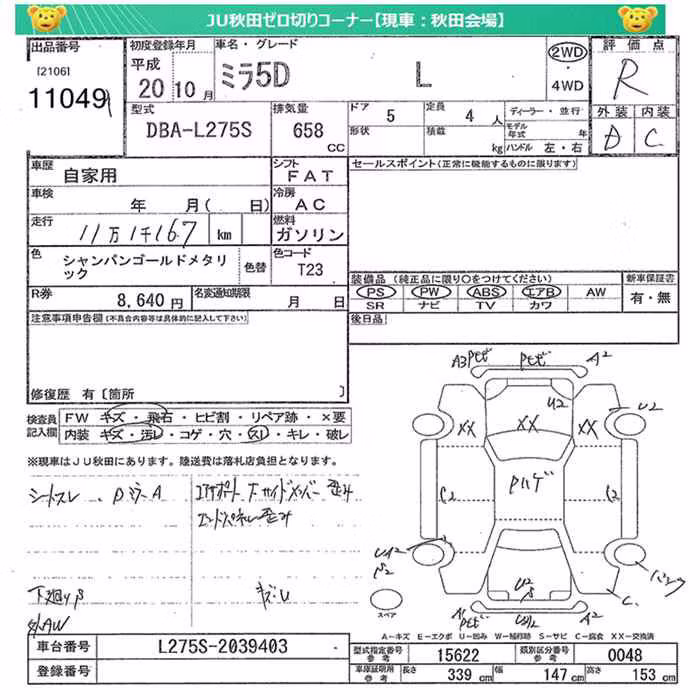 JU秋田ゼロ切りコーナー【現車：秋田会場】
出品番号
[2106]
11049
初度登録年月
平成
20 10 月
車名・グレード
ミラ5D L
2WD
・
4WD
評価点
R
外装 内装
D C
型式
DBA-L275S
排気量
658
CC
ドア
5
定員
4 人
形状
積載
kg
ディーラー・並行
モデル年式 年
ハンドル 左・右
車歴
自家用
シフト
FAT
車検
年 月( 日)
冷房
AC
走行
11万1千167 km
燃料
ガソリン
色
シャンパンゴールドメタリック
色替
色コード
T23
R券
8,640 円
名変通知期限
月 日
セールスポイント(正常に機能するものに限ります)
装備品 (純正品に限り○をつけてください)
PS PW ABS エアB AW
SR ナビ TV カワ
新車保証書
有・無
後日品
注意事項申告欄(不具合内容等は具体的に記入して下さい)
修復歴 有〔箇所 〕
検査員記入欄
FW キズ・飛石・ヒビ割・リペア跡・×要
内装 キズ・汚レ・コゲ・穴・スレ・キレ・破レ
※現車はJU秋田にあります。陸送費は落札店負担となります。
シートスレ、Dミラー A
エンドパネル歪み
下廻りS
キズ・U
外AW
A3 Pモビ Pモビ A2
U2
XX XX XX U2
Pハゲ
UA2
S2
U2
S
パンク
C
A2
スペア
A―キズ E―エクボ U―凹み W―補修跡 S―サビ C―腐食 XX―交換済
車台番号
L275S-2039403
登録番号
型式指定番号
参考
15622
類別区分番号
参考
0048
車庫証明用
参考
長さ
339 cm
幅
147 cm
高さ
153 cm